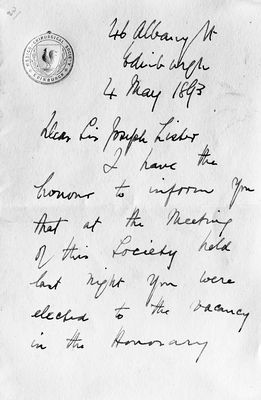 46 Albany St
Edinburgh
4 May 1893
Dear Sir Joseph Lister
I have the
honour to inform you
that at the Meeting
of this Society held
last night you were
elected to the vacancy
in the Honorary